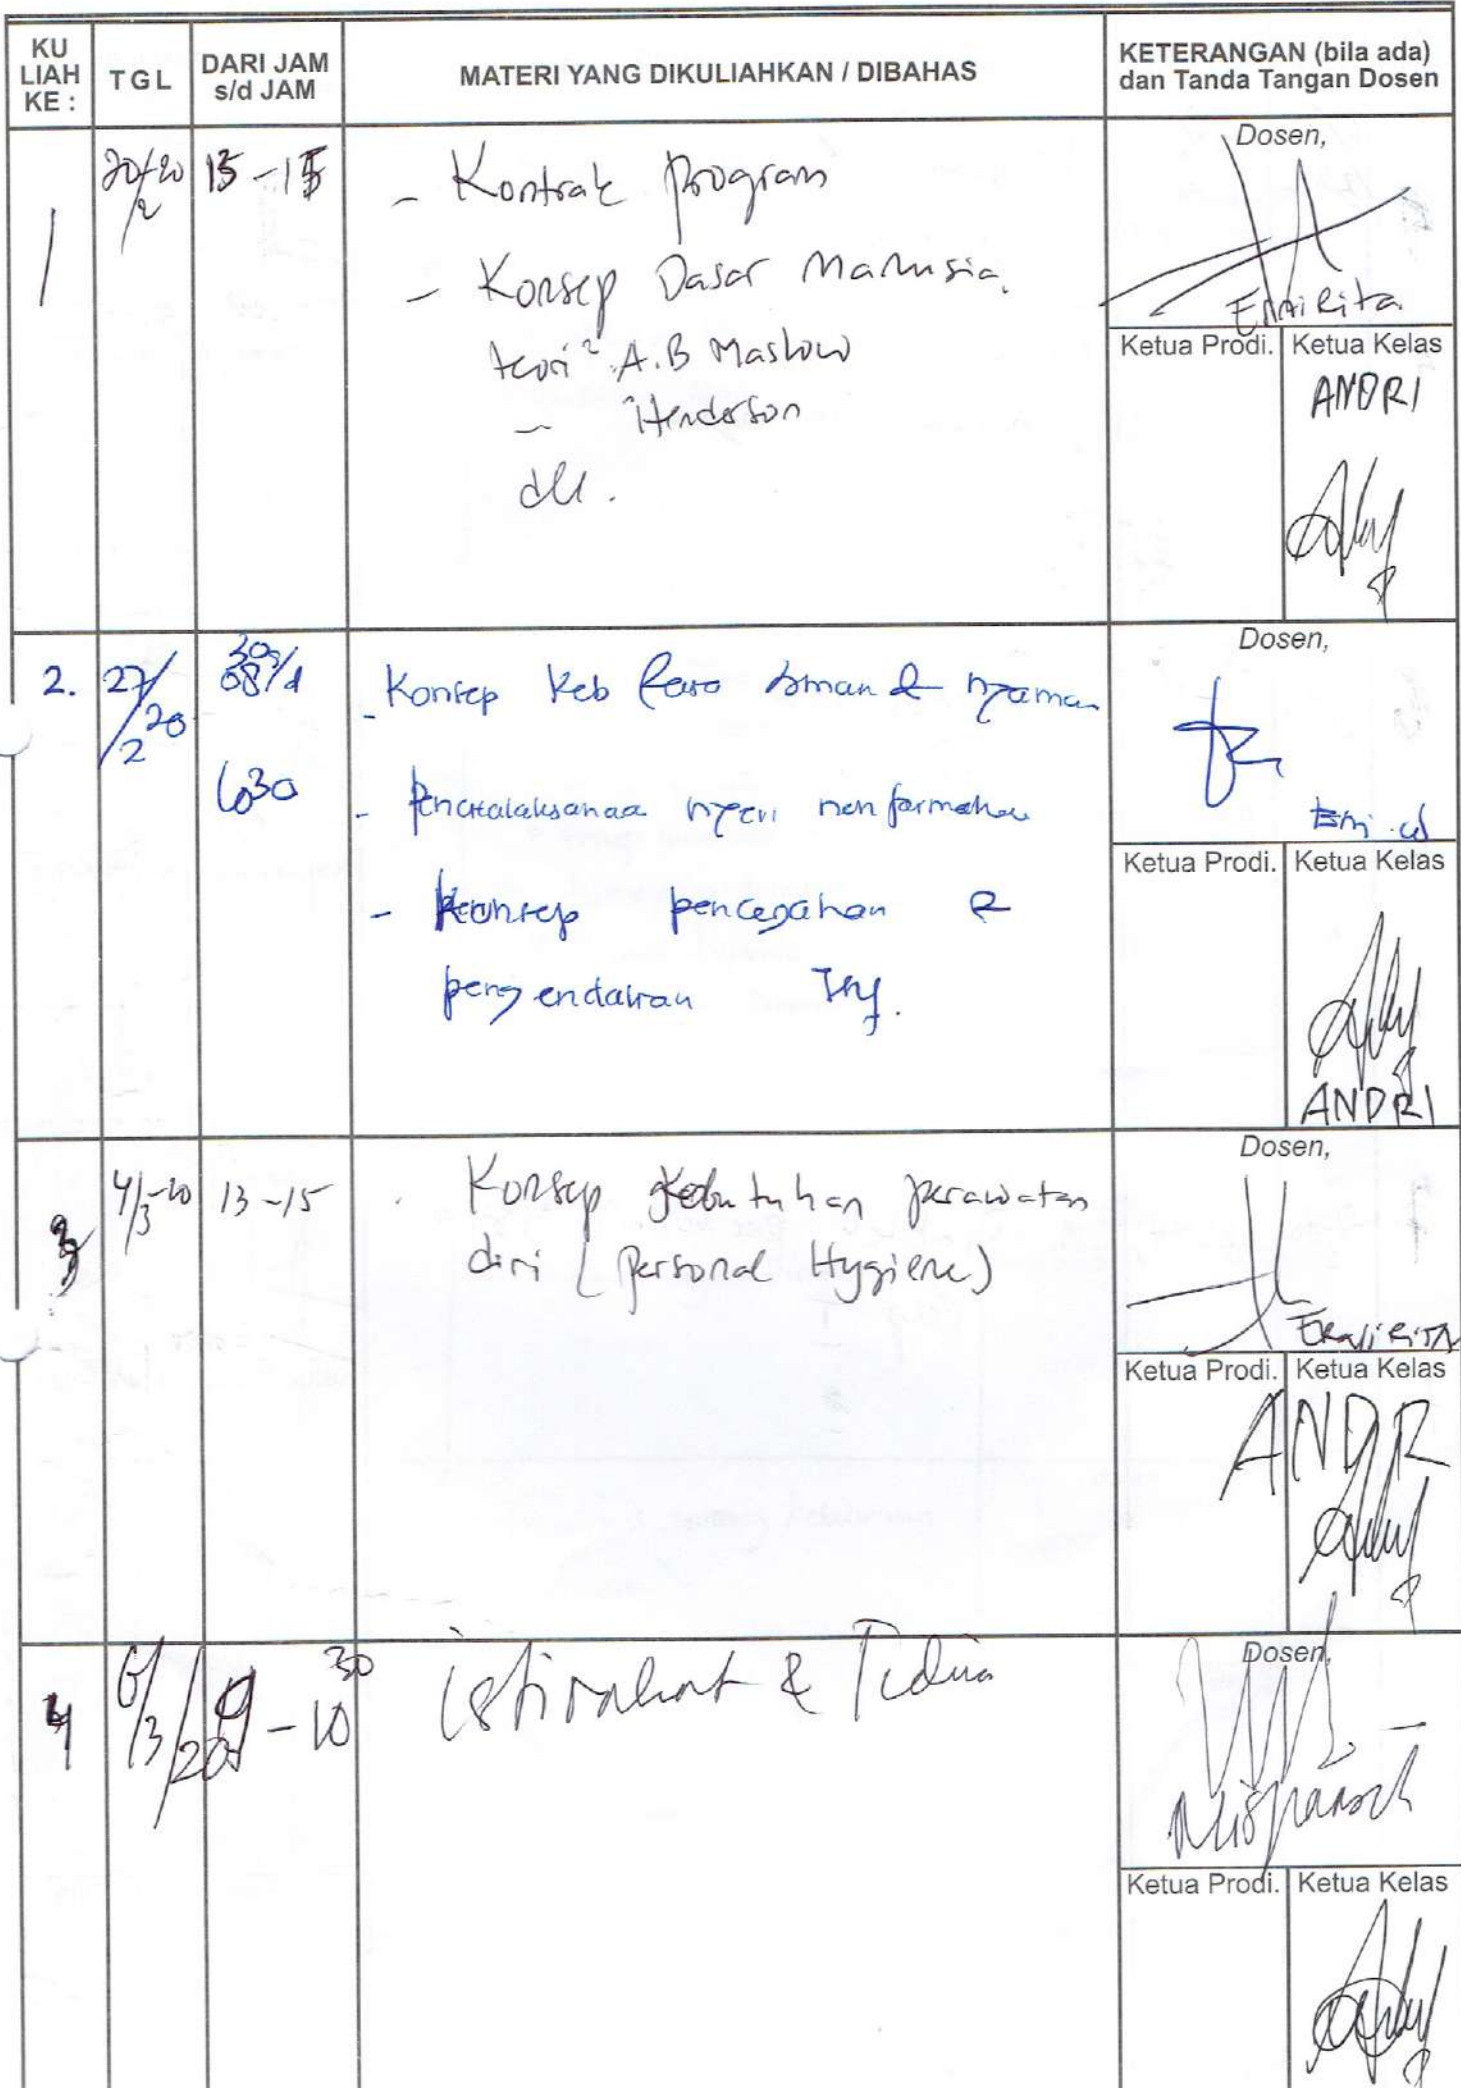 KU LIAH KE :
TGL
DARI JAM s/d JAM
MATERI YANG DIKULIAHKAN / DIBAHAS
KETERANGAN (bila ada) dan Tanda Tangan Dosen
1
20/2-20
13 - 15
- Kontrak program
- Konsep Dasar Manusia.
teori² A.B Maslow
- Henderson
dll.
Dosen,
Ernirita
Ketua Prodi.
Ketua Kelas
ANDRI
2.
27/2 20
08 30 s/d
1030
- Konsep Keb Rasa Aman & nyaman
- Penatalaksanaa nyeri non farmakor
- Konsep pencegahan &
pengendalian Inf.
Dosen,
Ketua Prodi.
Ketua Kelas
ANDRI
3
4/3-20
13 - 15
Konsep Kebutuhan perawatan
diri (Personal Hygiene)
Dosen,
ERNIRITA
Ketua Prodi.
Ketua Kelas
ANDR
4
6/3/20
9 - 10 30
istirahat & Tidur
Dosen,
Ketua Prodi.
Ketua Kelas